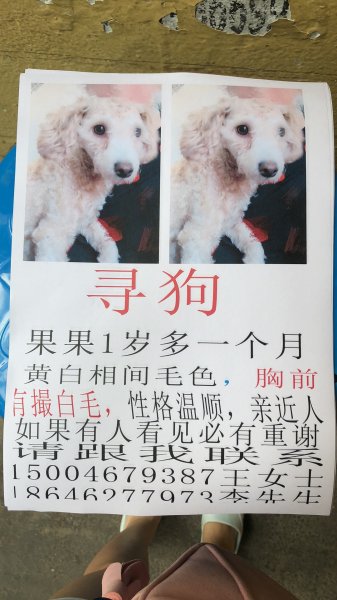 寻狗
果果1岁多一个月
黄白相间毛色，胸前
有撮白毛，性格温顺，亲近人
如果有人看见必有重谢
请跟我联系
15004679387王女士
18646277973李先生